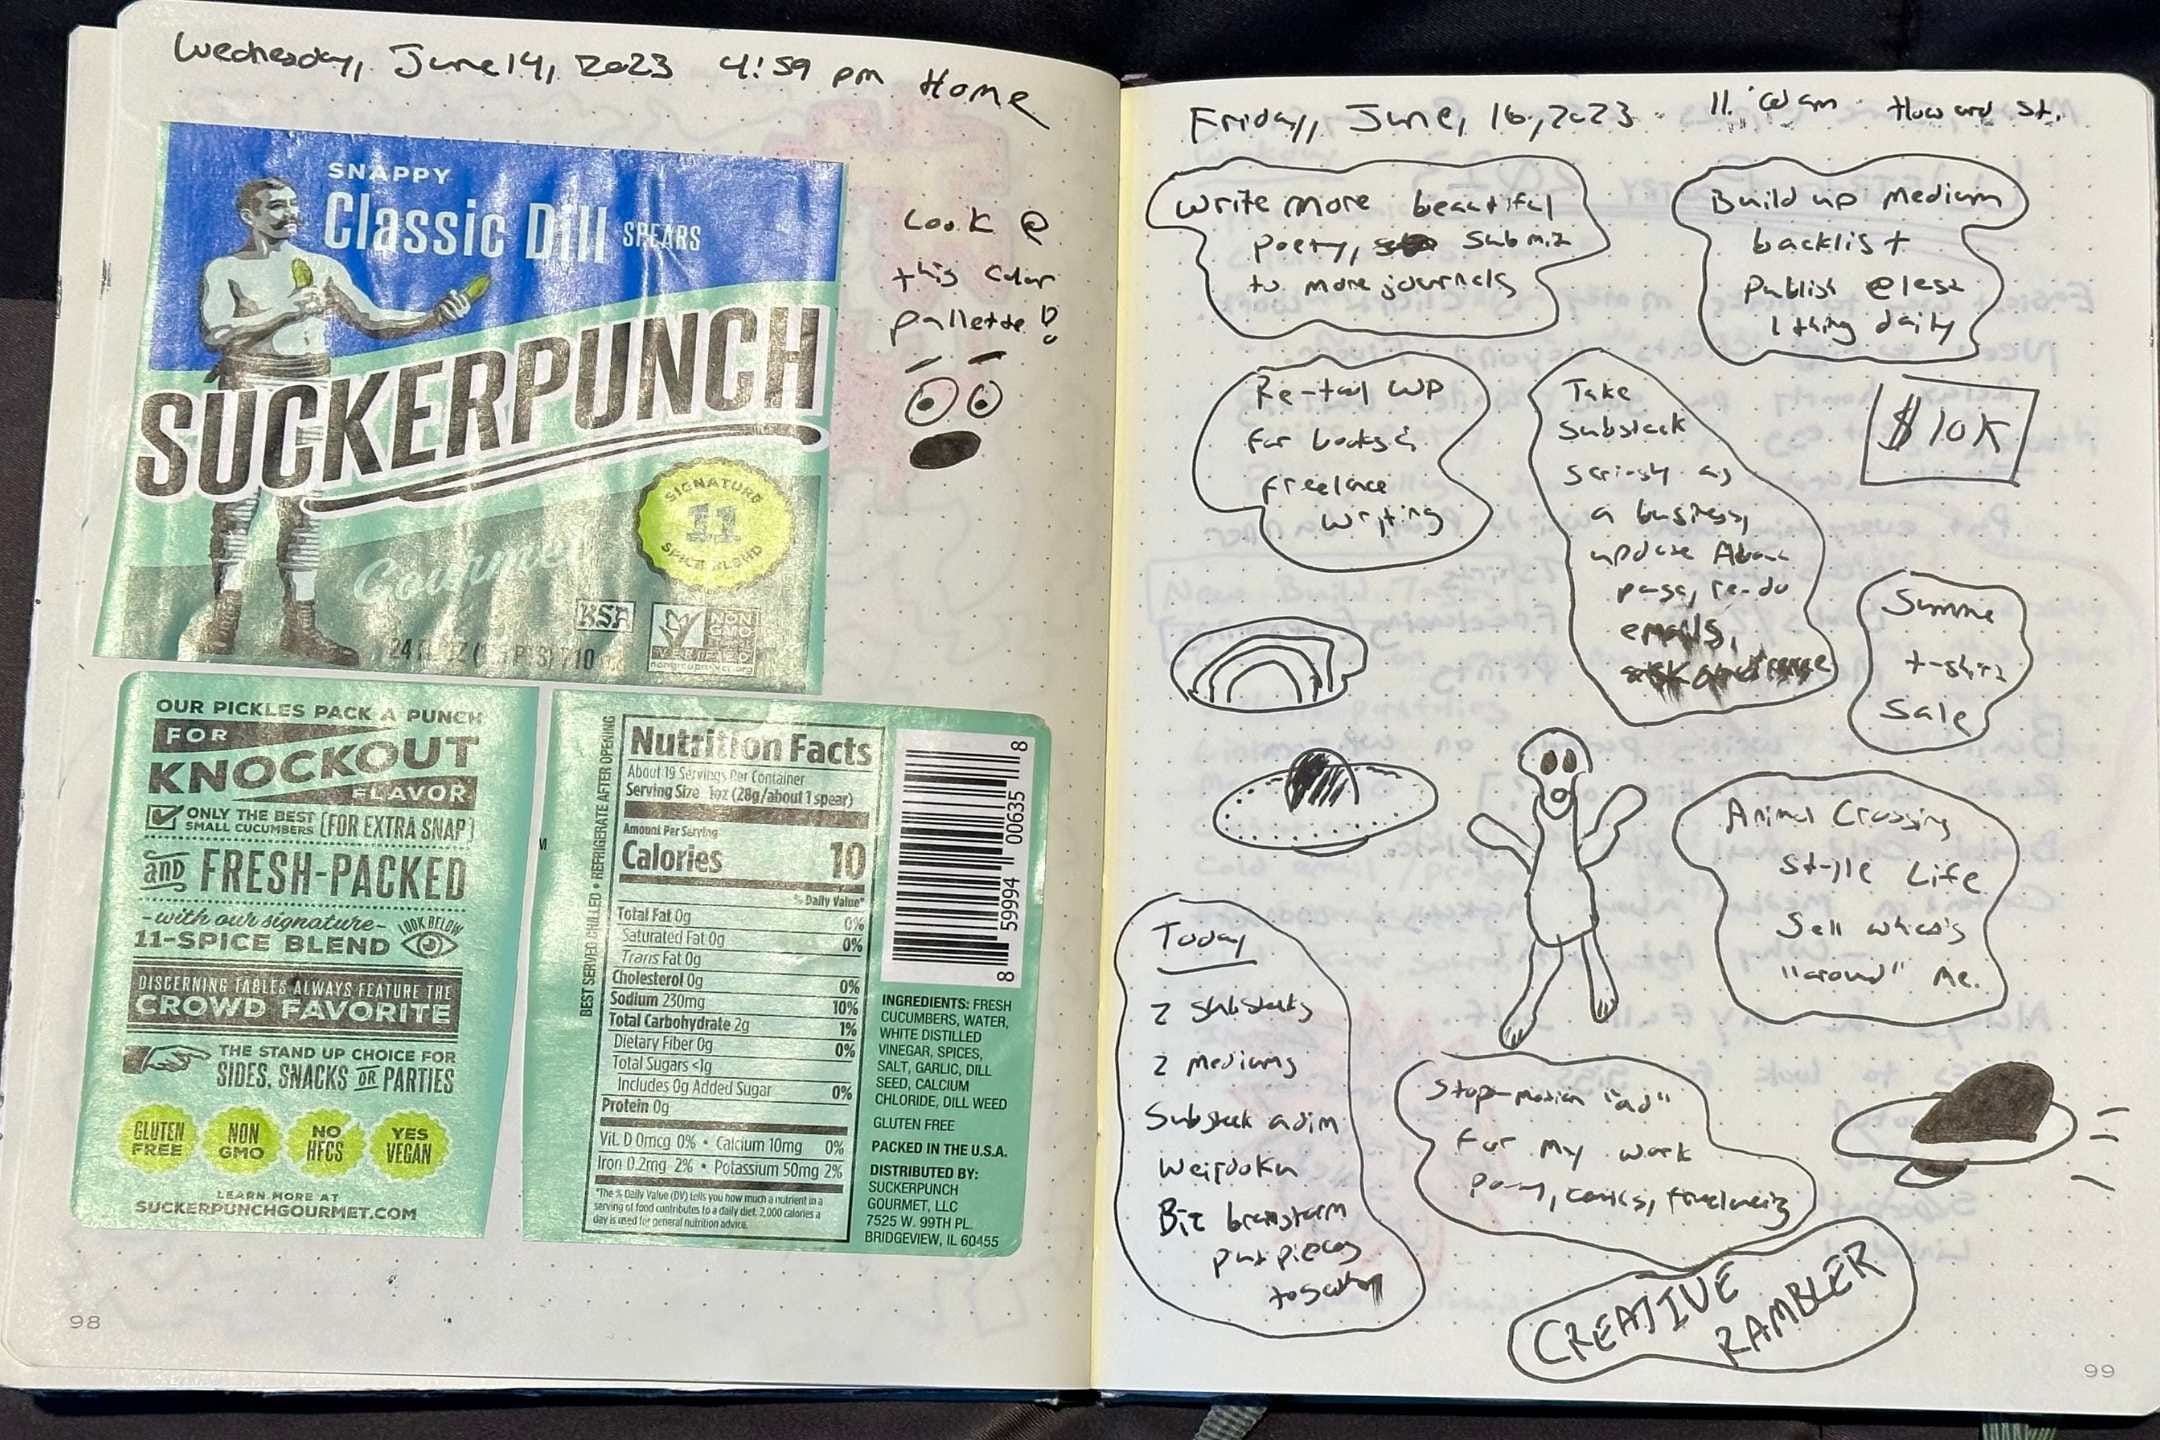 Wednesday, June 14, 2023 4:59 pm Home
SNAPPY
Classic Dill SPEARS
SUCKERPUNCH
Gourmet
SIGNATURE
11
SPICE BLEND
KSA
NON
GMO
VERIFIED
Look @
this color
pallette!
OUR PICKLES PACK A PUNCH
FOR
KNOCKOUT
FLAVOR
ONLY THE BEST
SMALL CUCUMBERS (FOR EXTRA SNAP)
and FRESH-PACKED
-with our signature-
11-SPICE BLEND
LOOK BELOW
DISCERNING TABLES ALWAYS FEATURE THE
CROWD FAVORITE
THE STAND UP CHOICE FOR
SIDES, SNACKS OR PARTIES
GLUTEN
FREE
NON
GMO
NO
HFCS
YES
VEGAN
LEARN MORE AT
SUCKERPUNCHGOURMET.COM
BEST SERVED CHILLED • REFRIGERATE AFTER OPENING
Nutrition Facts
About 19 Servings Per Container
Serving Size 1oz (28g/about 1 spear)
Amount Per Serving
Calories 10
% Daily Value*
Total Fat 0g 0%
Saturated Fat 0g 0%
Trans Fat 0g
Cholesterol 0g 0%
Sodium 230mg 10%
Total Carbohydrate 2g 1%
Dietary Fiber 0g 0%
Total Sugars <1g
Includes 0g Added Sugar 0%
Protein 0g
Vit. D 0mcg 0% • Calcium 10mg 0%
Iron 0.2mg 2% • Potassium 50mg 2%
*The % Daily Value (DV) tells you how much a nutrient in a
serving of food contributes to a daily diet. 2,000 calories a
day is used for general nutrition advice.
8 59994 00635 8
INGREDIENTS: FRESH
CUCUMBERS, WATER,
WHITE DISTILLED
VINEGAR, SPICES,
SALT, GARLIC, DILL
SEED, CALCIUM
CHLORIDE, DILL WEED
GLUTEN FREE
PACKED IN THE U.S.A.
DISTRIBUTED BY:
SUCKERPUNCH
GOURMET, LLC
7525 W. 99TH PL.
BRIDGEVIEW, IL 60455
98
Friday, June, 16, 2023 am Howard St.
Write more beautiful
poetry, submit
to more journals
Build up Medium
backlist
Publish @ least
1 thing daily
Re-tool WP
for books &
freelance
writing
Take
Substack
seriously as
a business,
update About
page, re-do
emails,
$10K
Summer
t-shirt
Sale
Animal Crossing
style Life
Sell what's
"around" me.
Today
2 substacks
2 mediums
Substack admin
Weirdoku
Big brainstorm
put pieces
together
Stop-motion "ad"
for my work
Poetry, comics, freelancing
CREATIVE
RAMBLER
99